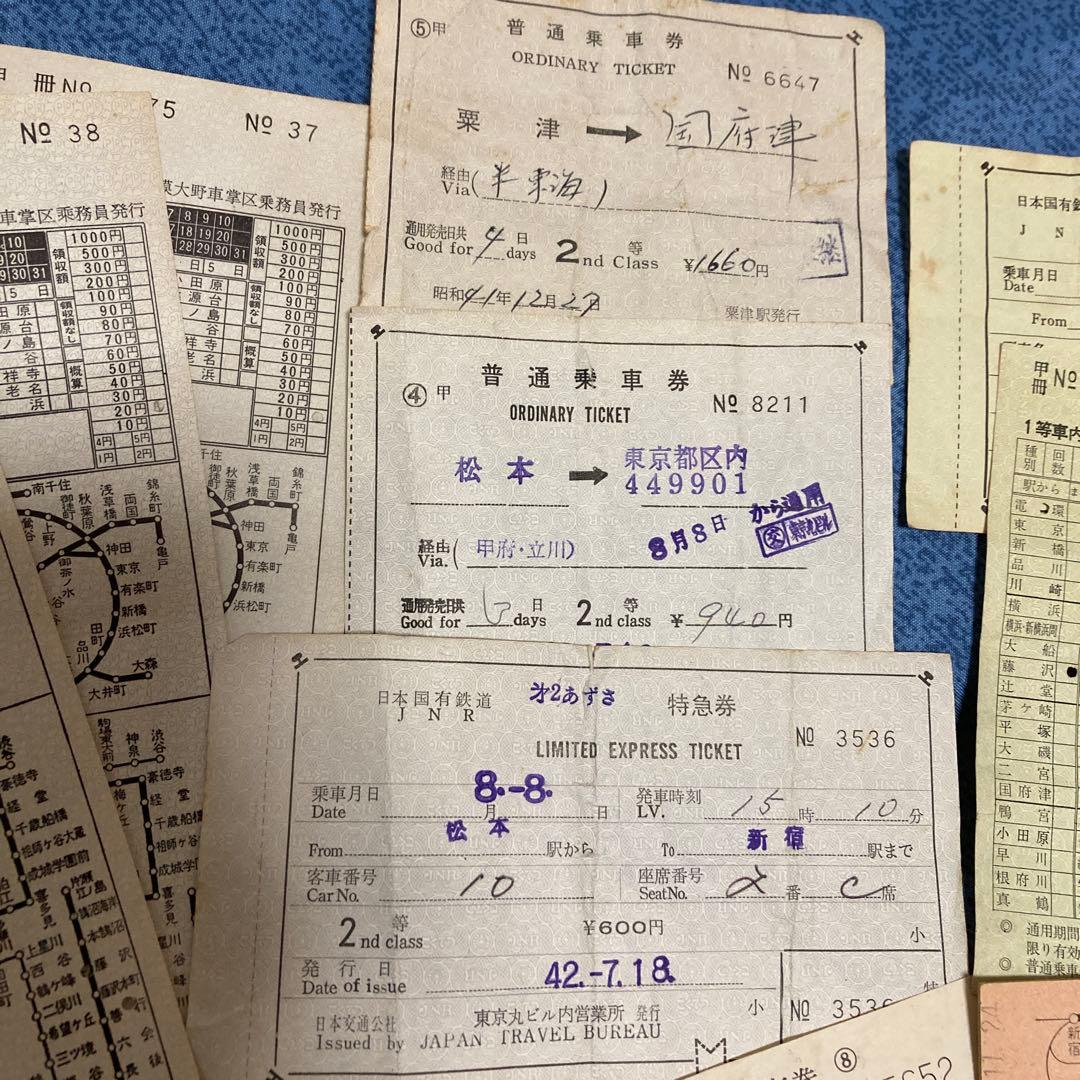 ⑤甲 普通乗車券
ORDINARY TICKET
№ 6647
粟津 → 国府津
経由
Via
(米東海)
通用発売日共 4日
Good for days
2 等
nd Class
¥1660円
昭和41年12月27
粟津駅発行
④甲 普通乗車券
ORDINARY TICKET
№ 8211
松本 → 東京都区内
449901
8月8日から通用
経由
Via.
(甲府・立川)
通用発売日共 日
Good for days
2 等
nd class
¥940円
日本国有鉄道
JNR
㐧2あずさ
特急券
LIMITED EXPRESS TICKET
№ 3536
乗車月日
Date
8.-8.
月 日
発車時刻
LV.
15時10分
松本
From 駅から
新宿
To 駅まで
客車番号
Car No.
10
座席番号
Seat No.
2番C席
2 等
nd class
¥600円
小
発行日
Date of issue
42.-7.18.
日本交通公社 東京丸ビル内営業所 発行
Issued by JAPAN TRAVEL BUREAU
小 特
№ 3536
甲 冊№ 75
№ 38
№ 37
車掌区乗務員発行
大野車掌区乗務員発行
7 8 9 10
17 18 19 20
28 29 30 31
日 5 日
領収額
領収額なし
概算
1000円
500円
300円
200円
100円
90円
80円
70円
60円
50円
40円
30円
20円
10円
4円 5円
1円 2円
小田原
源台
ノ島
谷
祥寺
老名
浜
南千住
鶯谷
上野
御徒町
秋葉原
浅草橋
両国
錦糸町
亀戸
御茶ノ水
神田
東京
有楽町
新橋
浜松町
田町
品川
大井町
大森
駒場東大前
神泉
渋谷
梅ヶ丘
豪徳寺
経堂
千歳船橋
祖師ヶ谷大蔵
成城学園前
喜多見
片瀬江ノ島
鵠沼海岸
本鵠沼
藤沢
藤沢本町
善行
六会
長後
上星川
西谷
鶴ケ峰
二俣川
希望ケ丘
三ツ境
日本国有鉄
J N
乗車月日
Date
From
甲
冊
№
1等車内
種別
回数
駅から
電環
東京
新橋
品川
川崎
横浜
横浜・新横浜間
大船
藤沢
辻堂
茅ヶ崎
平塚
大磯
二宮
国府津
鴨宮
小田原
早川
根府川
真鶴
◎ 通用期間
限り有効
◎ 普通乗車
⑧
券
5652
新宿